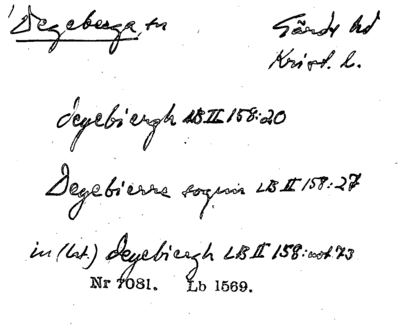 Degeberga, sn Gärds hd
Krist. l.
degebiergh LB II 158:20
Degebierre sognn LB II 158:27
in (lat.) degebiergh LB II 158: not. 73
Nr 7081. Lb 1569.